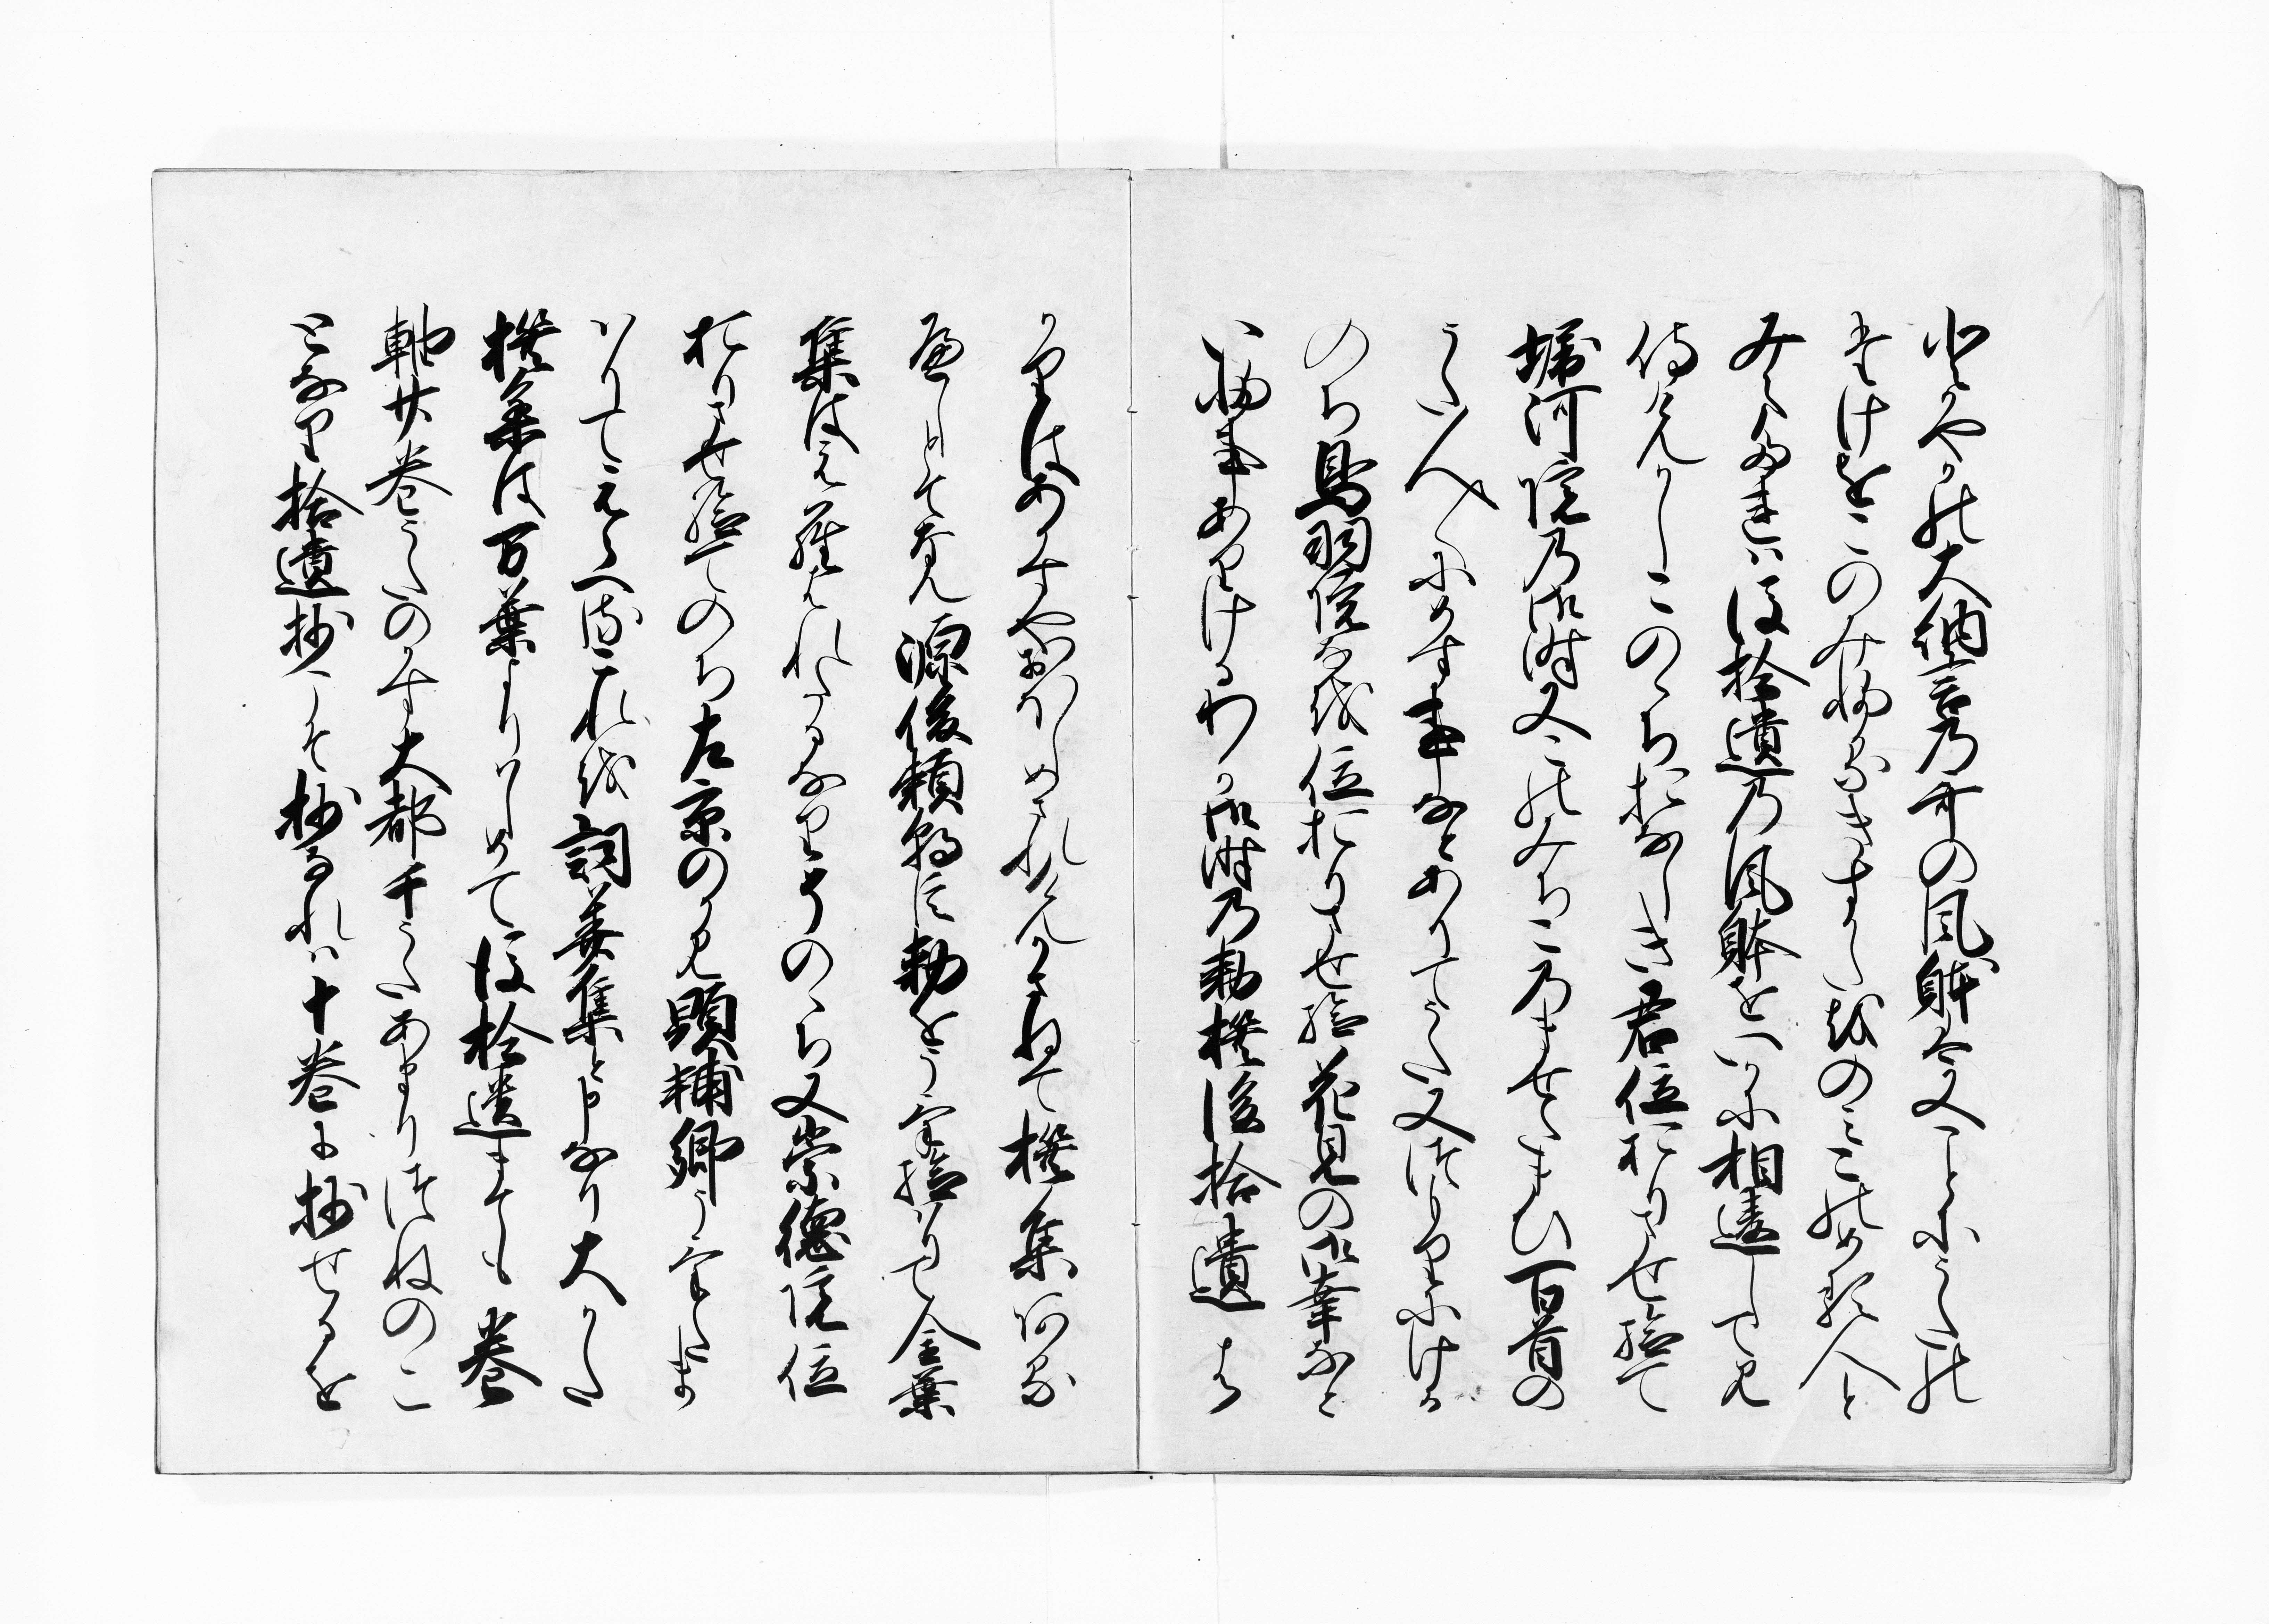 にやかの大納言乃哥の風躰は又ことにうたの
たけをこのみふるきすかたをのみこのめる人と
みえたれは後拾遺乃風躰をいかに相違してみ
侍けんかしこのゝちおなしき君位おりさせ給て
堀河院乃御時又このみちこのませたまひ百首の
うた人〱にめす事なとありてうた又つもりにける
のち鳥羽院なを位おりさせ給花見の御幸なと
いふ事ありけるわか御時乃勅撰後拾遺は
かりはあかすやおほしめされけんかさねて撰集ある
へしとてなん源俊頼朝臣に勅をうけ給はりて金葉
集はえらはれたるなりそのゝち又崇徳院位
おりさせ給てのち左京のかみ顕輔卿うけたま
はりてえらへるこれを詞華集と申なり大かた
撰集は万葉よりはしめて後拾遺まても巻
軸廿巻うたのかす大都千うたあまりつねのこ
となり拾遺抄こそ抄なれは十巻に抄せるを